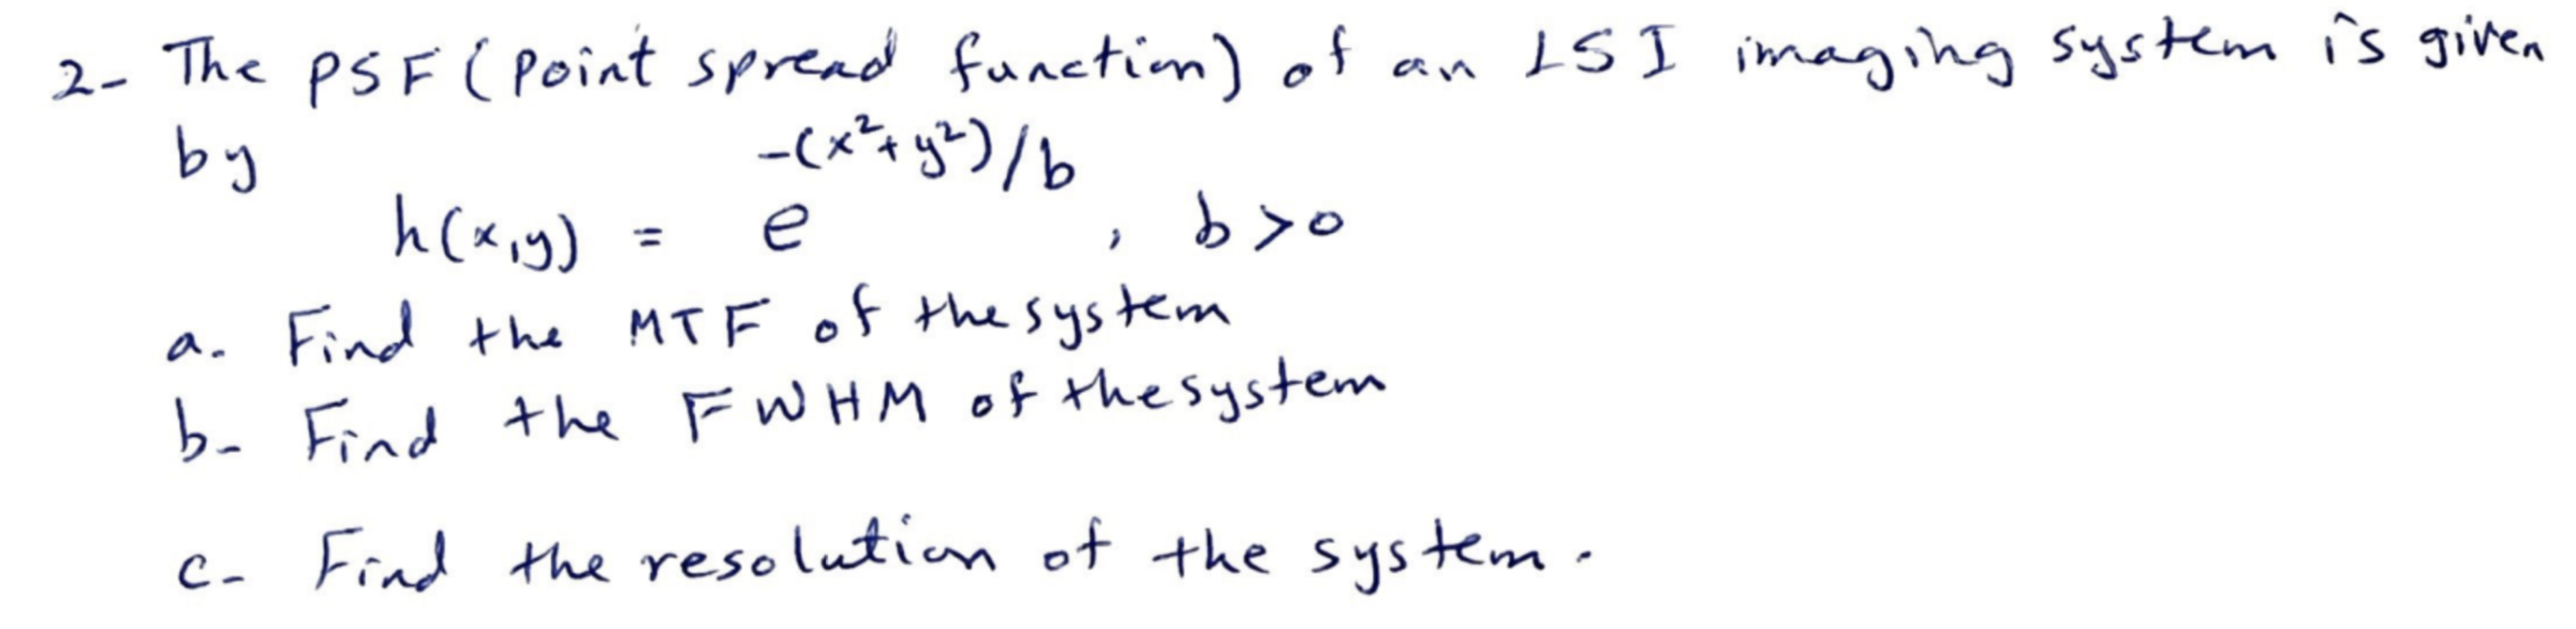 2- The PSF (point spread function) of an LSI imaging system is given
by
h(x,y) = e^{-(x²+y²)/b} , b>0
a. Find the MTF of the system
b- Find the FWHM of the system
c- Find the resolution of the system.